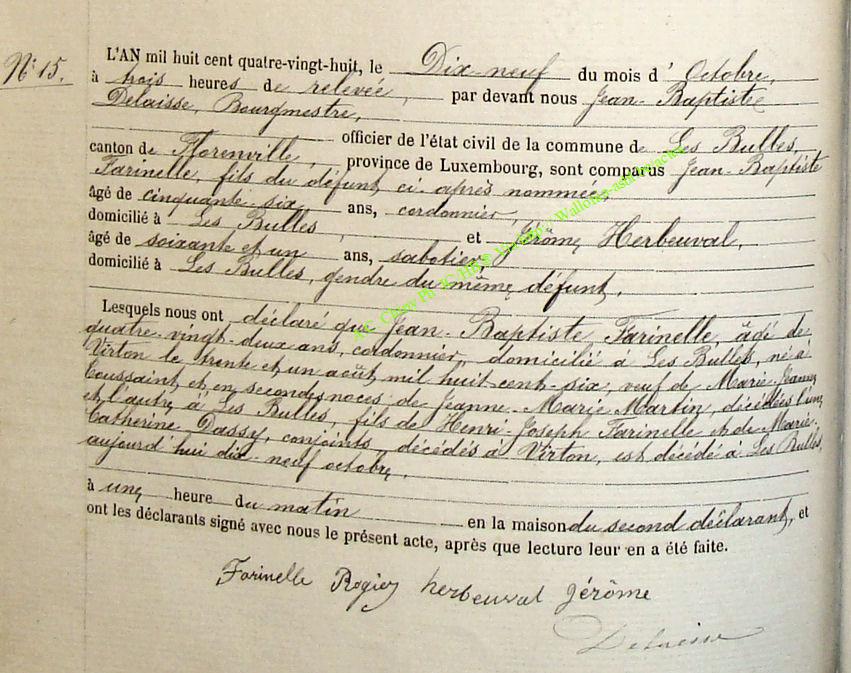 N° 15.
L'AN mil huit cent quatre-vingt-huit, le Dix-neuf du mois d' Octobre,
à trois heures de relevée, par devant nous Jean-Baptiste
Delaisse, Bourgmestre,
officier de l'état civil de la commune de Les Bulles,
canton de Florenville, province de Luxembourg, sont comparus Jean-Baptiste
Farinelle, fils du défunt, ci-après nommée,
âgé de cinquante-six ans, cordonnier,
domicilié à Les Bulles, et Jérôme Herbeuval,
âgé de soixante et un ans, sabotier,
domicilié à Les Bulles, gendre du même défunt.
Lesquels nous ont déclaré que Jean-Baptiste Farinelle, âgé de
quatre-vingt-deux ans, cordonnier, domicilié à Les Bulles, né à
Virton le trente et un août mil huit-cent-six, veuf de Marie-Jeanne
Toussaint et en secondes noces de Jeanne-Marie Martin, décédées l'une
et l'autre à Les Bulles, fils de Henri-Joseph Farinelle et de Marie-
Catherine Dassy, conjoints, décédés à Virton, est décédé à Les Bulles,
aujourd'hui dix-neuf octobre,
à une heure du matin en la maison du second déclarant, et
ont les déclarants signé avec nous le présent acte, après que lecture leur en a été faite.
Farinelle herbeuval jérôme
Delaisse